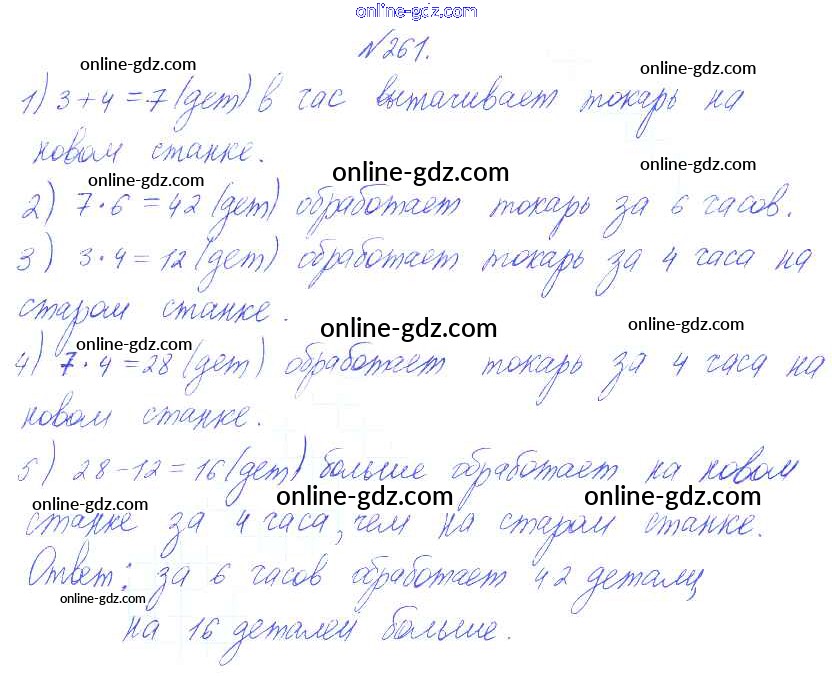 online-gdz.com
№261.
online-gdz.com online-gdz.com
1) 3+4=7 (дет) в час вытачивает токарь на
новом станке.
online-gdz.com online-gdz.com online-gdz.com
2) 7·6=42 (дет) обработает токарь за 6 часов.
3) 3·4=12 (дет) обработает токарь за 4 часа на
старом станке.
online-gdz.com online-gdz.com online-gdz.com
4) 7·4=28 (дет) обработает токарь за 4 часа на
новом станке.
5) 28-12=16 (дет) больше обработает на новом
online-gdz.com online-gdz.com online-gdz.com
станке за 4 часа, чем на старом станке.
Ответ: за 6 часов обработает 42 деталц
online-gdz.com
на 16 деталей больше.